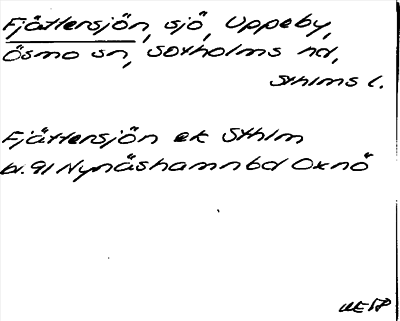 Fjättersjön, sjö, Uppeby,
Ösmo sn, Sotholms hd,
Sthlms l.
Fjättersjön ek Sthlm
bl. 91 Nynäshamn bd Oxnö